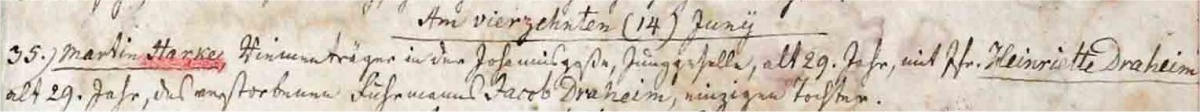 Am vierzehnten (14) Junÿ
35.) Martin Starke, Riementräger in der Johannisgaße, Junggeselle, alt 29. Jahr, mit Jfr. Heinriette Draheim
alt 29. Jahr, des verstorbenen Fuhrmanns Jacob Draheim, einzigen Tochter.